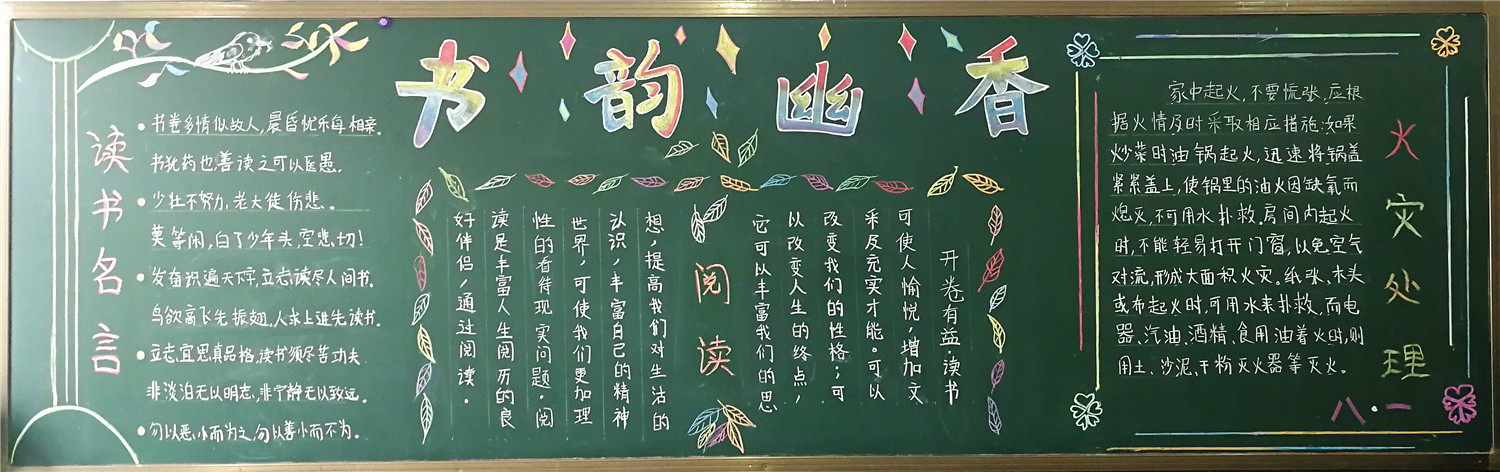 书韵幽香
读书名言
书卷多情似故人,晨昏忧乐每相亲.
书犹药也,善读之可以医愚.
少壮不努力,老大徒伤悲。
莫等闲,白了少年头,空悲切!
发奋识遍天下字,立志读尽人间书.
鸟欲高飞先振翅,人求上进先读书.
立志宜思真品格,读书须尽苦功夫
非淡泊无以明志,非宁静无以致远。
勿以恶小而为之,勿以善小而不为。
阅读
开卷有益·读书
可使人愉悦,增加文
采及充实才能。可以
改变我们的性格;可
以改变人生的终点,
它可以丰富我们的思
想,提高我们对生活的
认识,丰富自己的精神
世界,可使我们更加理
性的看待现实问题。阅
读是丰富人生阅历的良
好伴侣,通过阅读.
火灾处理
家中起火,不要慌张,应根
据火情及时采取相应措施:如果
炒菜时油锅起火,迅速将锅盖
紧紧盖上,使锅里的油火因缺氧而
熄灭,不可用水扑救.房间内起火
时,不能轻易打开门窗,以免空气
对流,形成大面积火灾。纸张、木头
或布起火时,可用水来扑救,而电
器、汽油、酒精、食用油着火时,则
用土、沙泥、干粉灭火器等灭火。
八·一